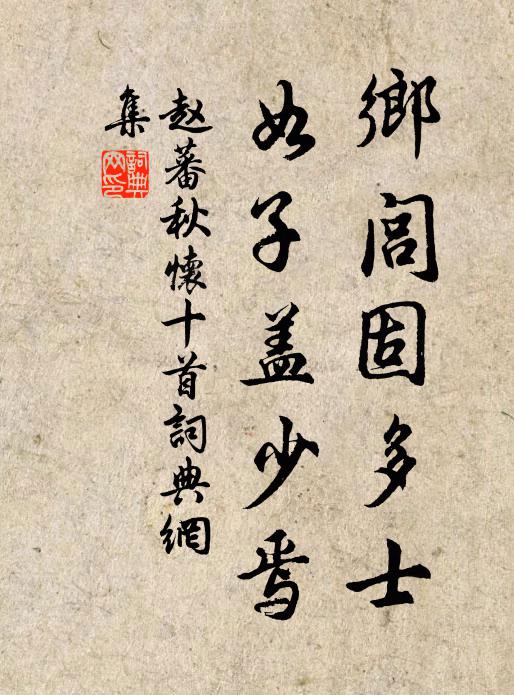 鄉閭固多士
如子盖少焉
赵蕃秋懷十首詞典網
集
詞典
网印